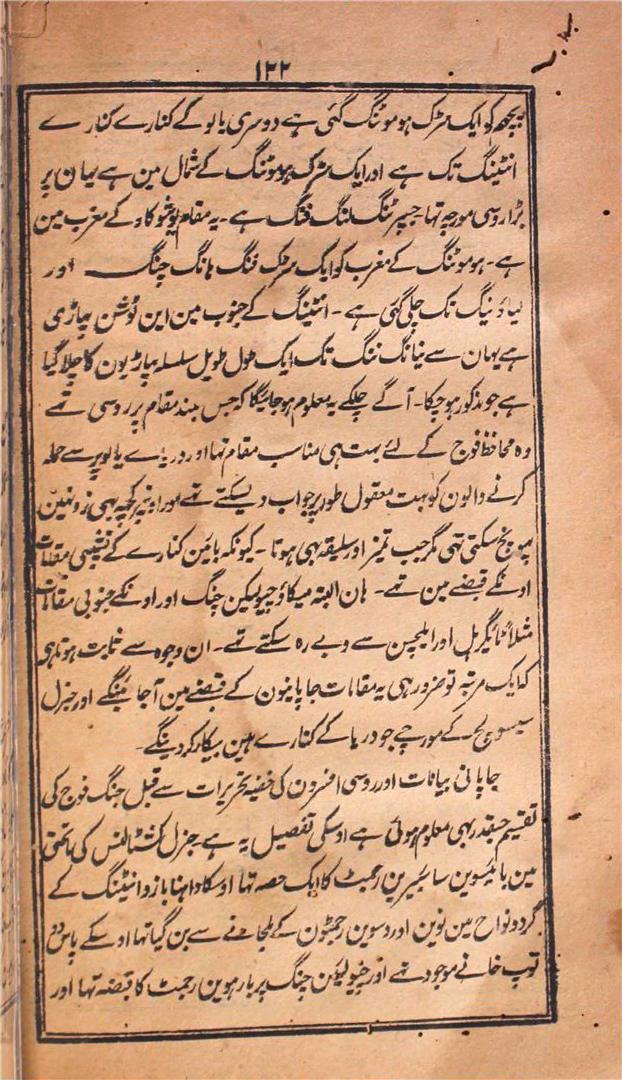 ۱۲۲
پچھم کو ایک سڑک ہوموٹنگ گئی ہے دوسری یالو کے کنارے کنارے
انٹینگ تک ہے اور ایک سڑک ہوموٹنگ کے شمال مین ہے یہان پر
بڑا روسی مورچہ تہا جسپر ٹنگ لنگ فنگ ہے۔ یہ مقام پوشوکاو کے مغرب مین
ہے۔ ہوموٹنگ کے مغرب کو ایک سڑک فنگ ہانگ چنگ اور
لیاؤنیگ تک چلی گئی ہے۔ انٹینگ کے جنوب مین این ٹوشن پہاڑی
ہے یہان سے نیانگ ننگ تک ایک طول طویل سلسلہ پہاڑیون کا چلا گیا
ہے جو مذکور ہو چکا۔ آگے چلکے یہ معلوم ہو جائیگا کہ جس بلند مقام پر روسی تھے
وہ محافظ فوج کے لئے بہت ہی مناسب مقام تہا اور دریاے یالو پر سے حملہ
کرنے والون کو بہت معقول طور پر جواب دیسکتے تھے اور اونپر کچھ بھی زد نہین
پہونچ سکتی تھی مگر جب تمیز اور سلیقہ بھی ہوتا۔ کیونکہ بائین کنارے کے نشیبی مقامات
اونکے قبضے مین تھے۔ ہان البتہ میکاؤ چیولیکن چنگ اور اونکے جنوبی مقامات
مثلاً ٹائیگرہل اور ایلچین سے وہ بے رہ سکتے تھے۔ ان وجوہ سے ثابت ہوتا ہی
کہ ایک مرتبہ تو ضرور ہی یہ مقامات جاپانیون کے قبضے مین آجائینگے اور جنرل
کے مورچے جو دریا کے کنارے ہین بیکار کر دینگے۔
جاپانی بیانات اور روسی افسرون کی خفیہ تحریرات سے قبل جنگ فوج کی
تقسیم جسقدر بھی معلوم ہوئی ہے اوسکی تفصیل یہ ہے۔ جنرل کشٹالنس کی ماتحتی
مین بائیسوین سائبیرین رجمٹ کا ایک حصہ تہا اوسکا داہنا بازو انٹینگ کے
گرد و نواح مین نوین اور دسوین رجمٹون کے ملجانے سے بن گیا تہا اوسکے پاس دو
توپ خانے موجود تھے اور چیولیکن چنگ پر بارہوین رجمٹ کا قبضہ تہا اور